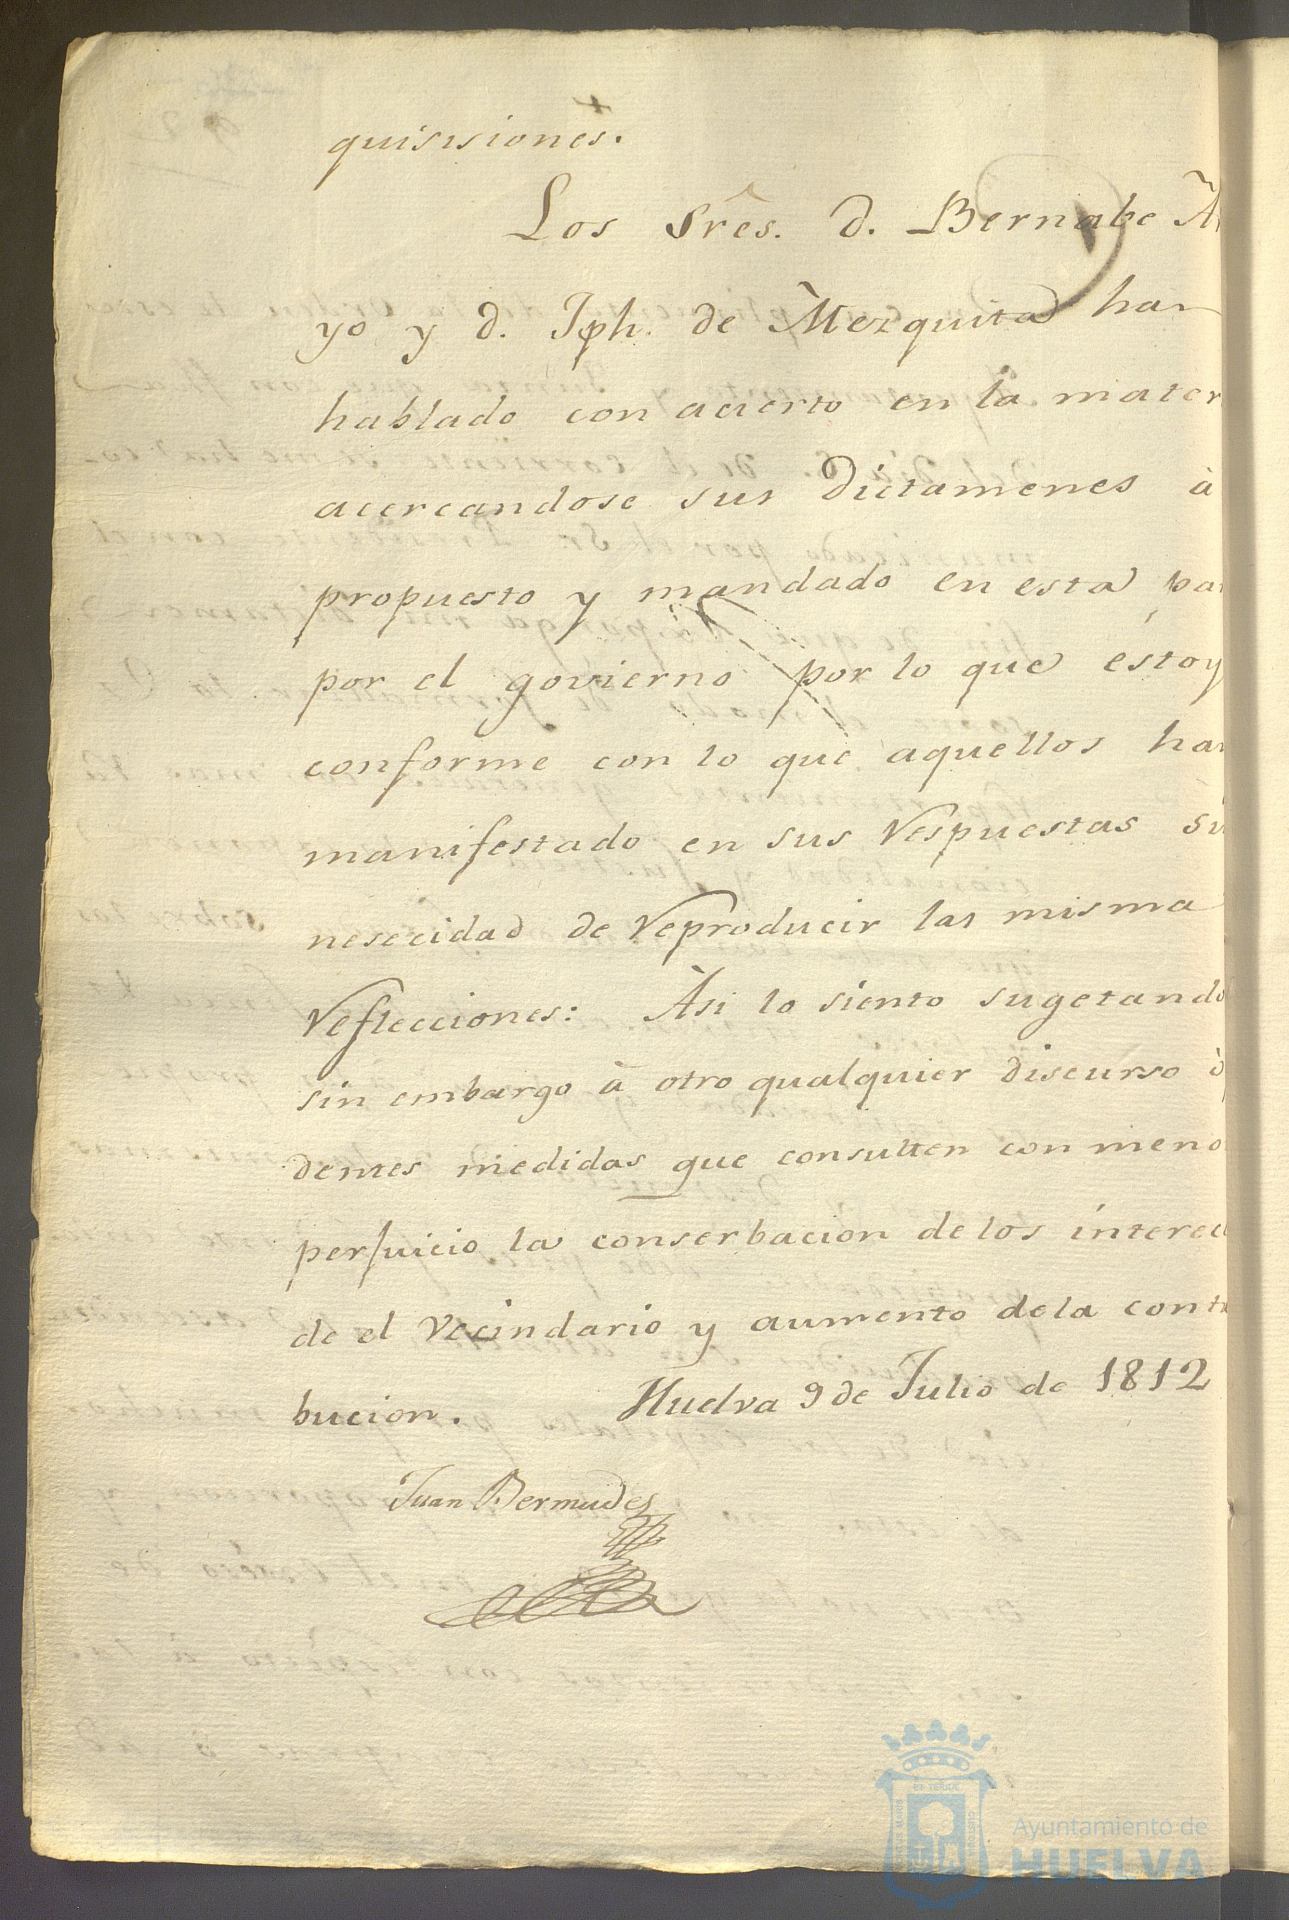 quisisiones.
Los Srês. d. Bernabe Ar
yo y d. Jph. de Mezquita han
hablado con acierto en la mater
acercandose sus dictamenes à
propuesto y mandado en esta par
por el govierno por lo que estoy
conforme con lo que aquellos han
manifestado en sus Respuestas si
nesecidad de Reproducir las misma
Reflecciones: Àsi lo siento sugetando
sin embargo à otro qualquier discurso ò
dentes medidas que consulten con meno
perjuicio la conserbacion de los intere
de el Vecindario y aumento de la contri
bucion. Huelva 9 de Julio de 1812
Juan Bermudes
Ayuntamiento de
HUELVA